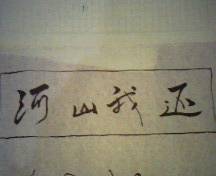 河山我还